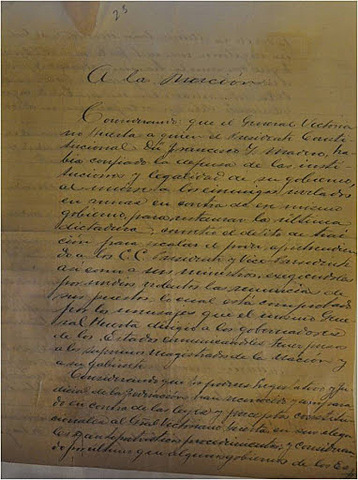 25
A la Nación
Considerando que el General Victoria
no Huerta a quien el Presidente Consti-
tucional Don Francisco I. Madero, ha-
bía confiado la defensa de las insti-
tuciones y legalidad de su gobierno,
al unirse a los enemigos rebelados
en armas en contra de ese mismo
gobierno, para restaurar la última
dictadura, cometió el delito de trai-
ción para escalar el poder, aprehendien-
do a los C.C. Presidente y Vice-Presidente
así como a sus ministros, exigiéndoles
por medios violentos las renuncias de
sus puestos, lo cual está comprobado
por los mensajes que el mismo Gene-
ral Huerta dirigió a los gobernadores
de los Estados comunicándoles tener presos
a los supremos magistrados de la Nación y
a su Gabinete.
Considerando que los poderes Legislativo y Ju-
dicial de la Federación han reconocido y ampara-
do en contra de las leyes y preceptos constitu-
cionales al Gral. Victoriano Huerta en sus ilega-
les y antipatrióticos procedimientos, y consideran-
do por último que algunos gobiernos de los Es